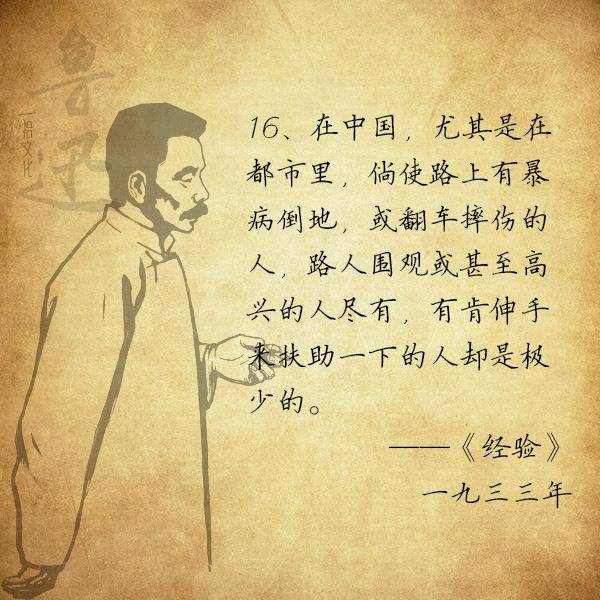 鲁迅
一路文化
16、在中国，尤其是在
都市里，倘使路上有暴
病倒地，或翻车摔伤的
人，路人围观或甚至高
兴的人尽有，有肯伸手
来扶助一下的人却是极
少的。
——《经验》
一九三三年